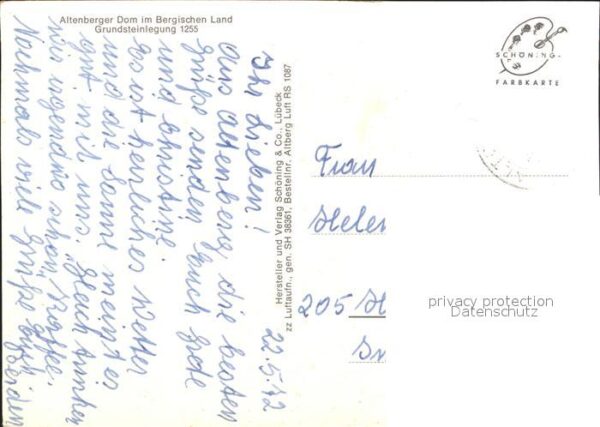 Altenberger Dom im Bergischen Land
Grundsteinlegung 1255
22.5.72
Ihr Lieben!
Aus Altenberg, die besten
Grüße senden Euch Gode
und Christine.
Es ist herrliches Wetter
und die Sonne meint es
gut mit uns. Gleich trinken
wir irgendwo schön Kaffee.
Nochmals viele Grüße Euch
beiden
Hersteller und Verlag Schöning & Co., Lübeck
zz Luftaufn., gen. SH 36361, Bestellnr. Altberg Luft RS 1087
SCHÖNING
FARBKARTE
Frau
Helen
205 H
privacy protection
Datenschutz